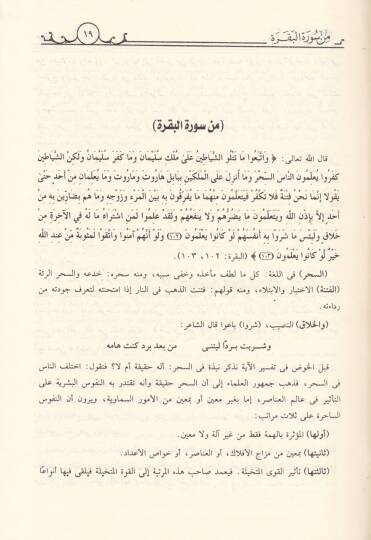 من سورة البقرة
١٩
(من سورة البقرة)
قال الله تعالى: ﴿ واتبعوا ما تتلو الشياطين على ملك سليمان وما كفر سليمان ولكن الشياطين
كفروا يعلمون الناس السحر وما أنزل على الملكين ببابل هاروت وماروت وما يعلمان من أحد حتى
يقولا إنما نحن فتنة فلا تكفر فيتعلمون منهما ما يفرقون به بين المرء وزوجه وما هم بضارين به من
أحد إلا بإذن الله ويتعلمون ما يضرهم ولا ينفعهم ولقد علموا لمن اشتراه ما له في الآخرة من
خلاق ولبئس ما شروا به أنفسهم لو كانوا يعلمون (١٠٢) ولو أنهم آمنوا واتقوا لمثوبة من عند الله
خير لو كانوا يعلمون (١٠٣) ﴾ (البقرة: ١٠٢، ١٠٣).
(السحر) في اللغة: كل ما لطف مأخذه وخفي سببه، ومنه سحره: خدعه والسحر الرئة
(الفتنة) الاختبار والابتلاء، ومنه قولهم: فتنت الذهب في النار إذا امتحنته لتعرف جودته من
رداءته.
(والخلاق) النصيب، (شروا) باعوا قال الشاعر:
وشريت بردًا ليتنى من بعد برد كنت هامه
قبل الخوض في تفسير الآية نذكر نبذة في السحر: أله حقيقة أم لا؟ فنقول: اختلف الناس
في السحر، فذهب جمهور العلماء إلى أن السحر حقيقة وأنه تقتدر به النفوس البشرية على
التأثير في عالم العناصر، إما بغير معين أو بمعين من الأمور السماوية، ويرون أن النفوس
الساحرة على ثلاث مراتب:
(أولها) المؤثرة بالهمة فقط من غير آلة ولا معين.
(ثانيتها) بمعين من مزاج الأفلاك، أو العناصر، أو خواص الأعداد.
(ثالثتها) تأثير القوى المتخيلة. فيعمد صاحب هذه المرتبة إلى القوة المتخيلة فيلقى فيها أنواعًا